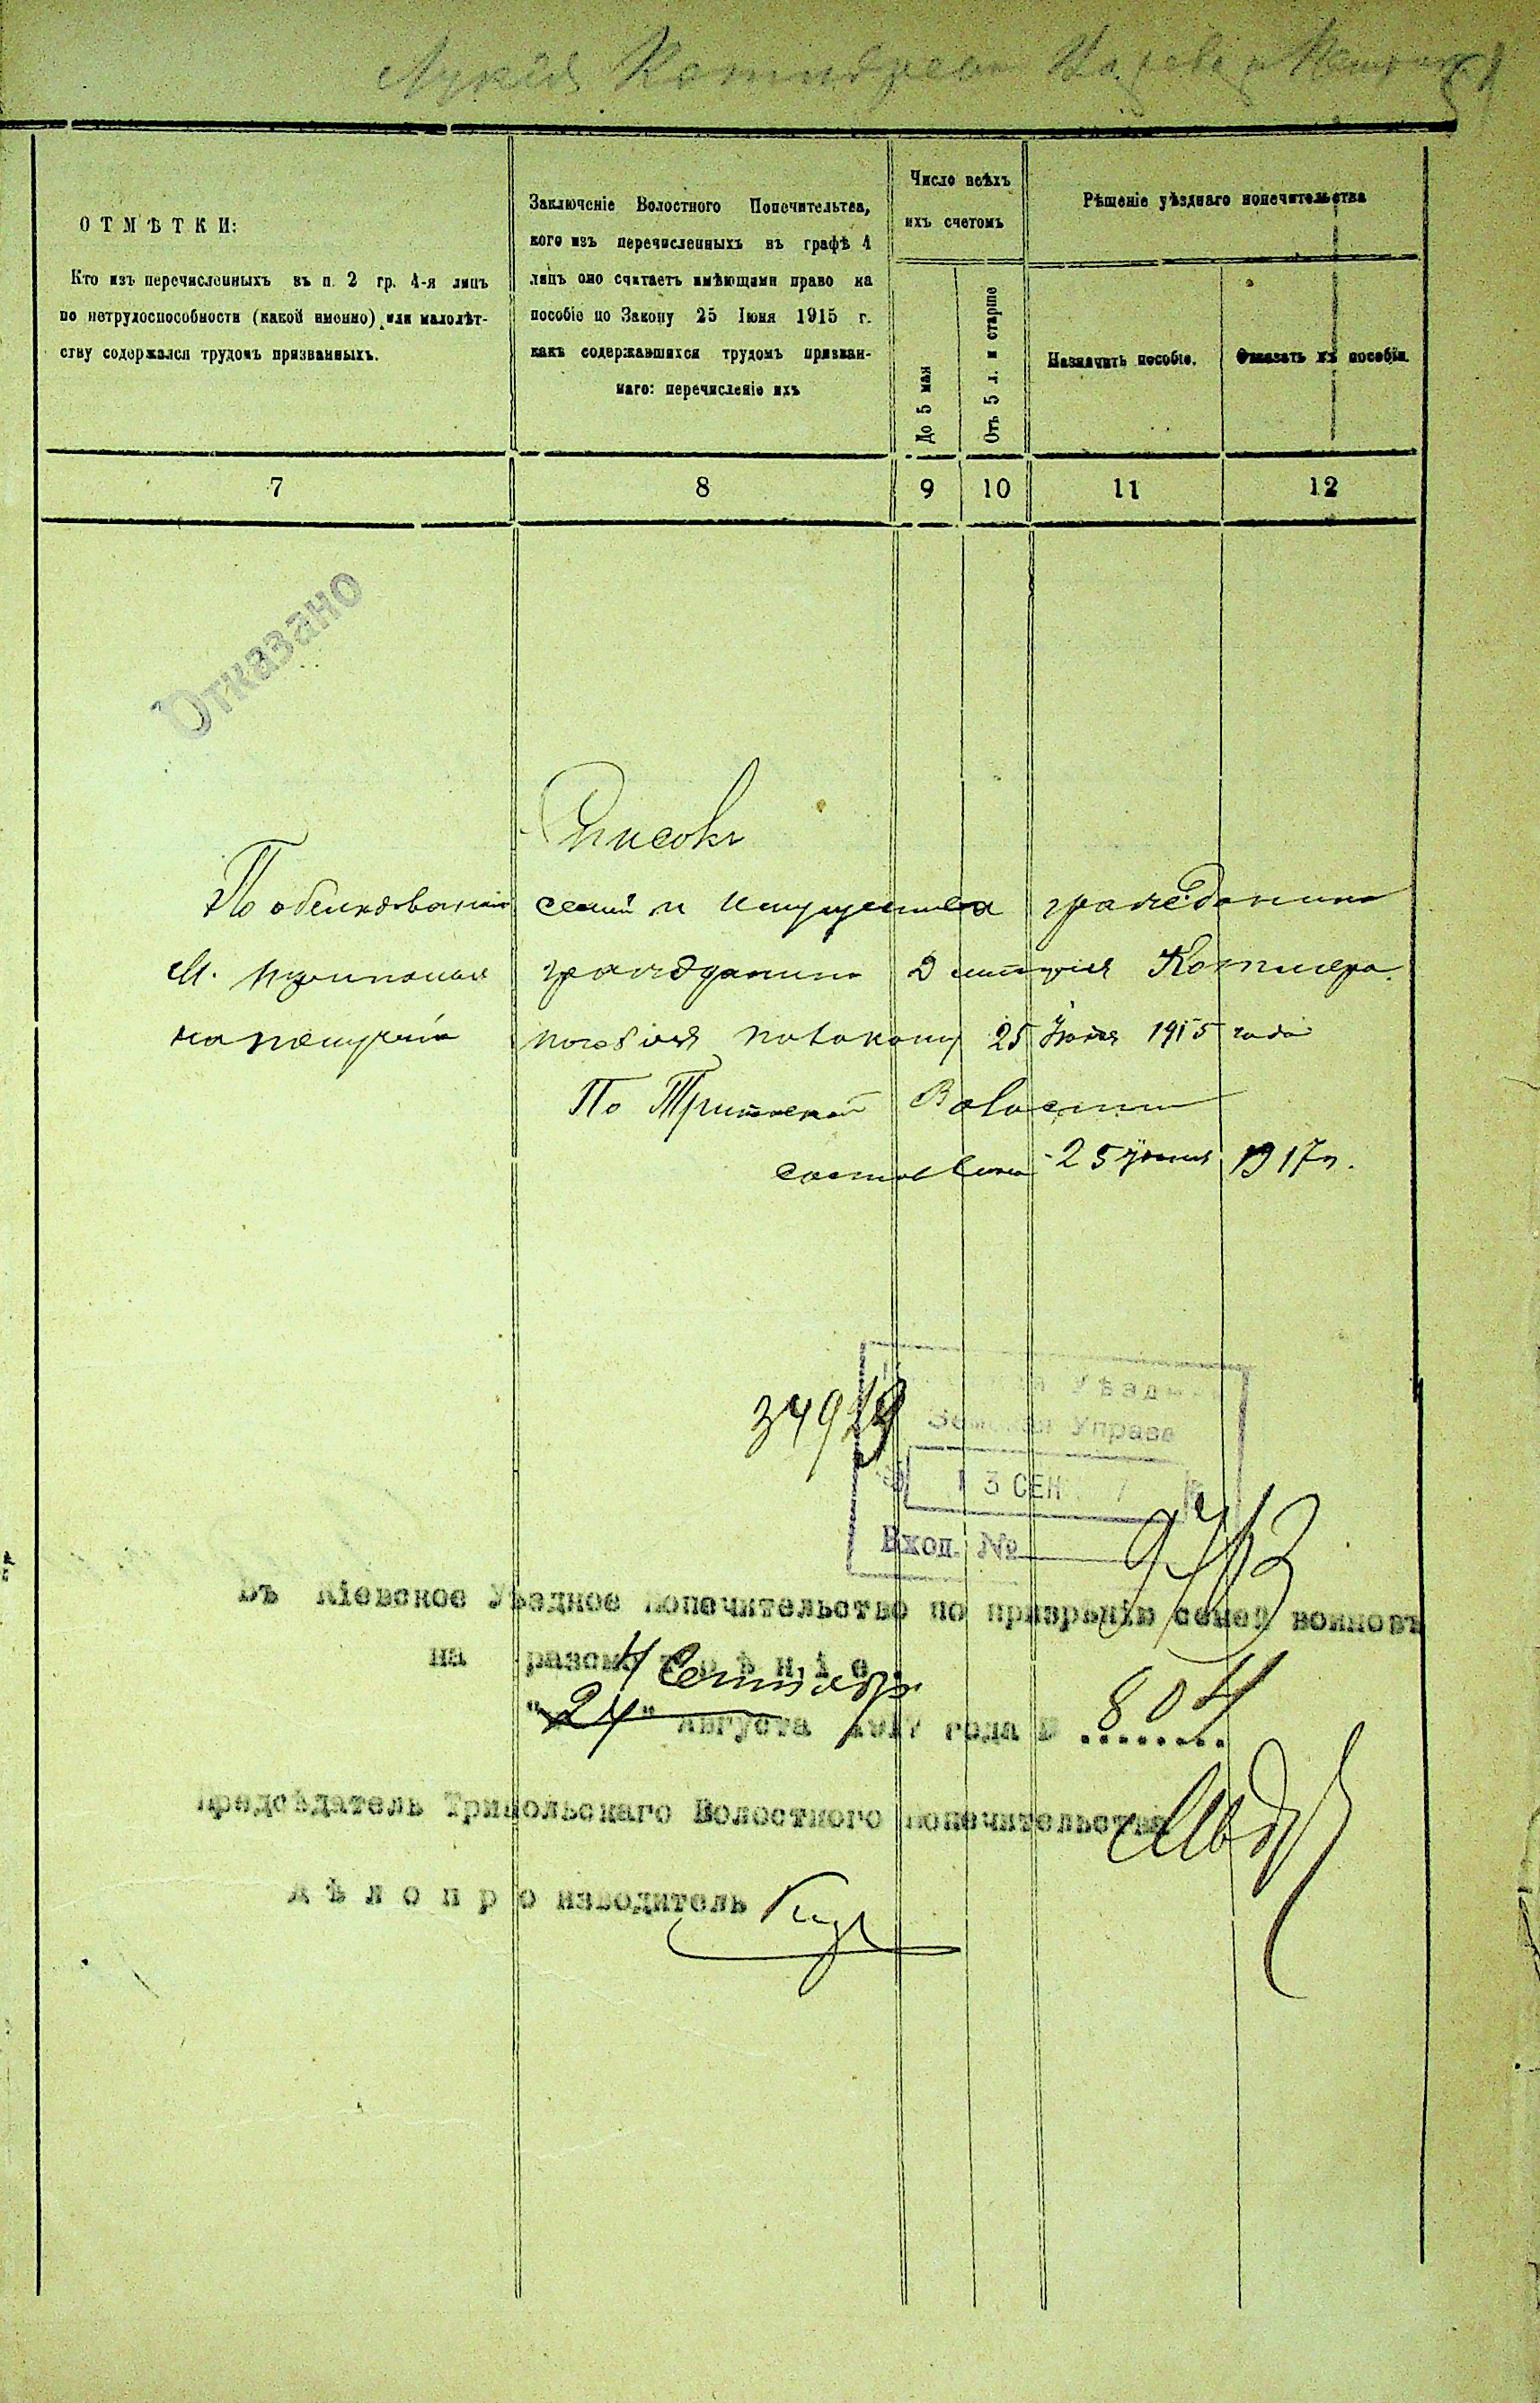 Лукія
ОТМѢТКИ:
Кто изъ перечисленныхъ въ п. 2 гр. 4-я лицъ
по нетрудоспособности (какой именно) или малолѣт-
ству содержался трудомъ призванныхъ.
Заключеніе Волостного Попечительтва,
кого изъ перечисленныхъ въ графѣ 4
лицъ оно считаетъ имѣющими право на
пособіе по Закону 25 Іюня 1915 г.
какъ содержавшихся трудомъ призван-
наго: перечисленіе ихъ
Число всѣхъ
ихъ счетомъ
До 5 мая
Отъ 5 л. и старше
Рѣшеніе уѣзднаго попечительства
Назначить пособіе.
Отказать въ пособіи.
7 8 9 10 11 12
Отказано
Списокъ
По обслѣдованію семьи и имущества гражданина
М. гражданина Дмитрія
на полученіе пособія по закону 25 Іюня 1915 года
По Волости
составленъ 25 Іюня 1917 г.
Уѣздн
Земская Управа
3 СЕН
Вход. №
Въ Кіевское Уѣздное Попечительство по призрѣнію семей воиновъ
на разсмотрѣніе.
4 Сентября
"24" Августа 1917 года № 804
Предсѣдатель Трипольскаго Волостного Попечительства
Дѣлопроизводитель